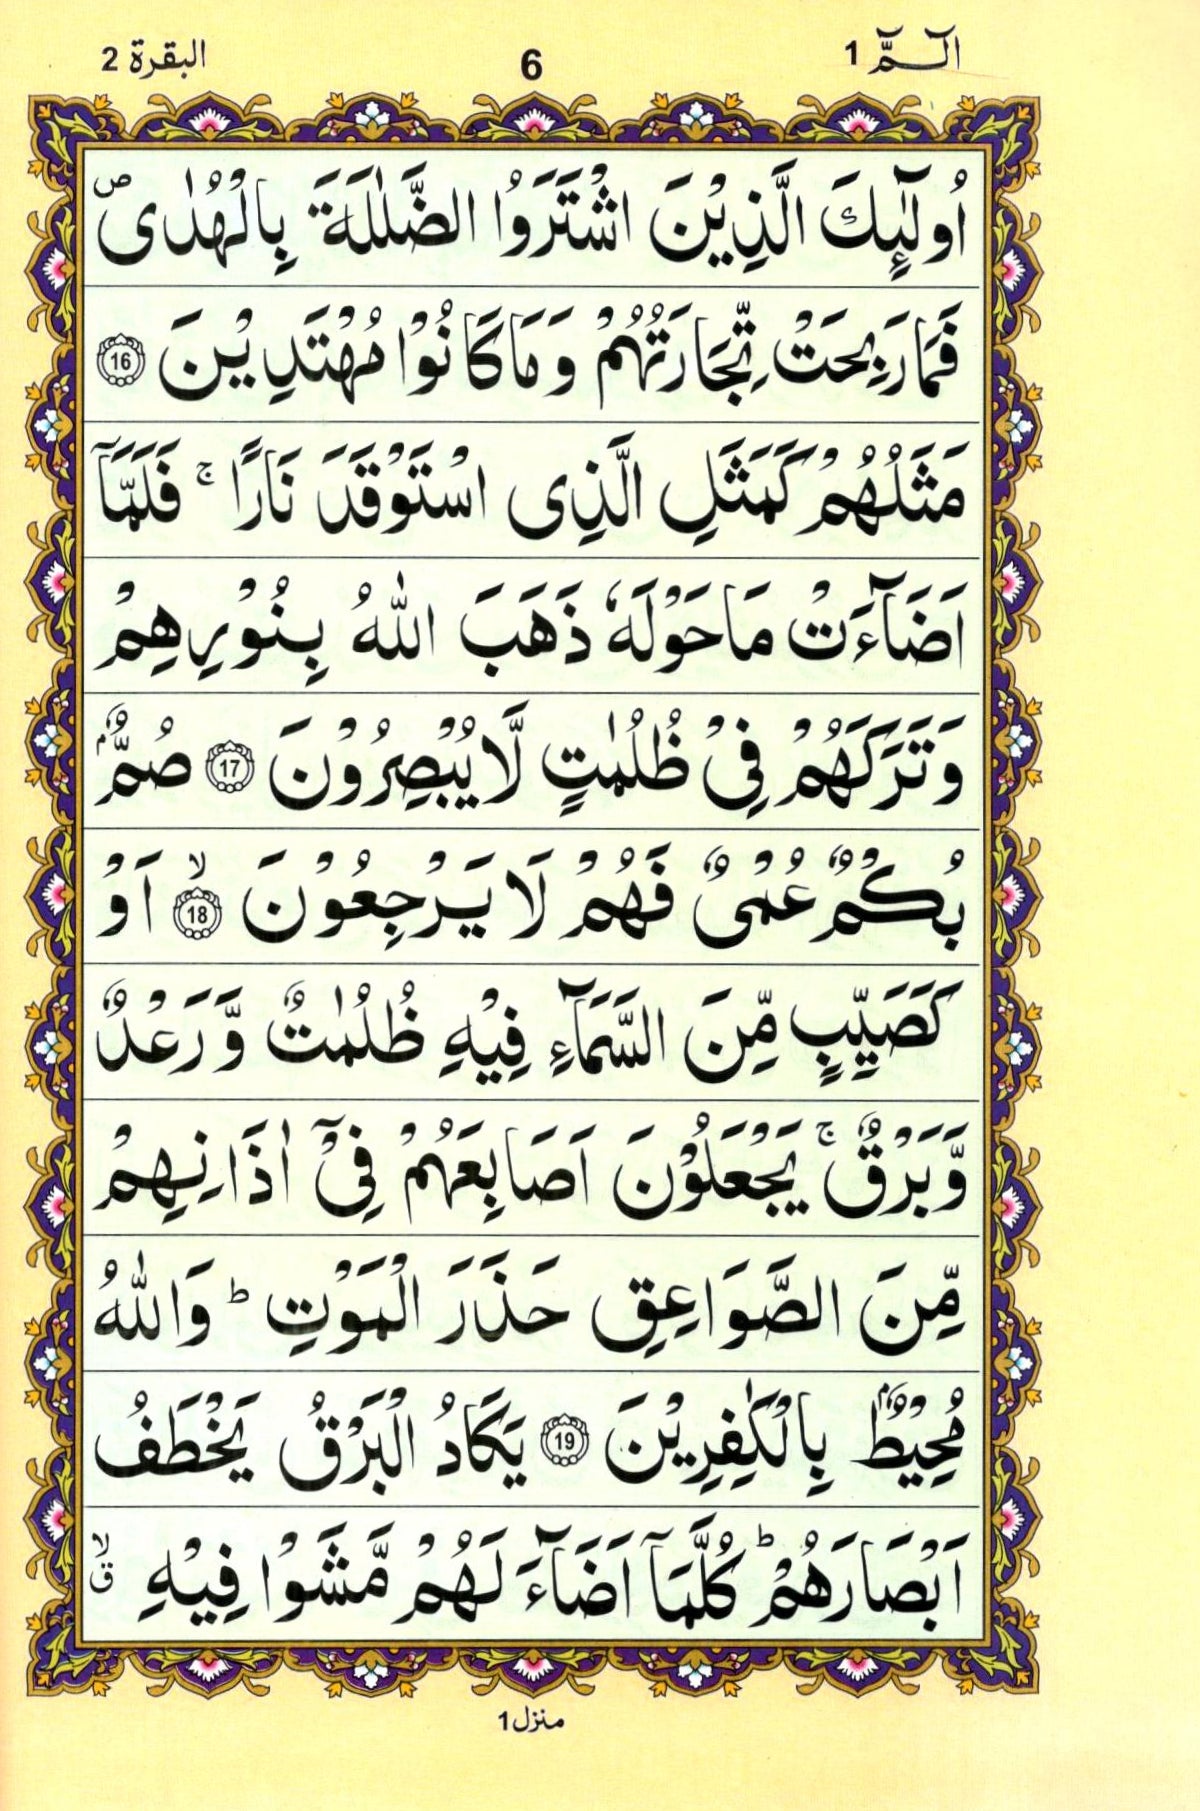 الٓـمّٓ 1
6
البقرة 2
اُولٰٓئِكَ الَّذِيْنَ اشْتَرَوُا الضَّلٰلَةَ بِالْهُدٰى ۪
فَمَا رَبِحَتْ تِّجَارَتُهُمْ وَمَا كَانُوْا مُهْتَدِيْنَ 16
مَثَلُهُمْ كَمَثَلِ الَّذِى اسْتَوْقَدَ نَارًا ۚ فَلَمَّآ
اَضَآءَتْ مَا حَوْلَهٗ ذَهَبَ اللّٰهُ بِنُوْرِهِمْ
وَتَرَكَهُمْ فِىْ ظُلُمٰتٍ لَّا يُبْصِرُوْنَ 17 صُمٌّۢ
بُكْمٌ عُمْىٌ فَهُمْ لَا يَرْجِعُوْنَ ۙ 18 اَوْ
كَصَيِّبٍ مِّنَ السَّمَآءِ فِيْهِ ظُلُمٰتٌ وَّرَعْدٌ
وَّبَرْقٌ ۚ يَجْعَلُوْنَ اَصَابِعَهُمْ فِىْٓ اٰذَانِهِمْ
مِّنَ الصَّوَاعِقِ حَذَرَ الْمَوْتِ ؕ وَاللّٰهُ
مُحِيْطٌۢ بِالْكٰفِرِيْنَ 19 يَكَادُ الْبَرْقُ يَخْطَفُ
اَبْصَارَهُمْ ؕ كُلَّمَآ اَضَآءَ لَهُمْ مَّشَوْا فِيْهِ ۙق
منزل 1